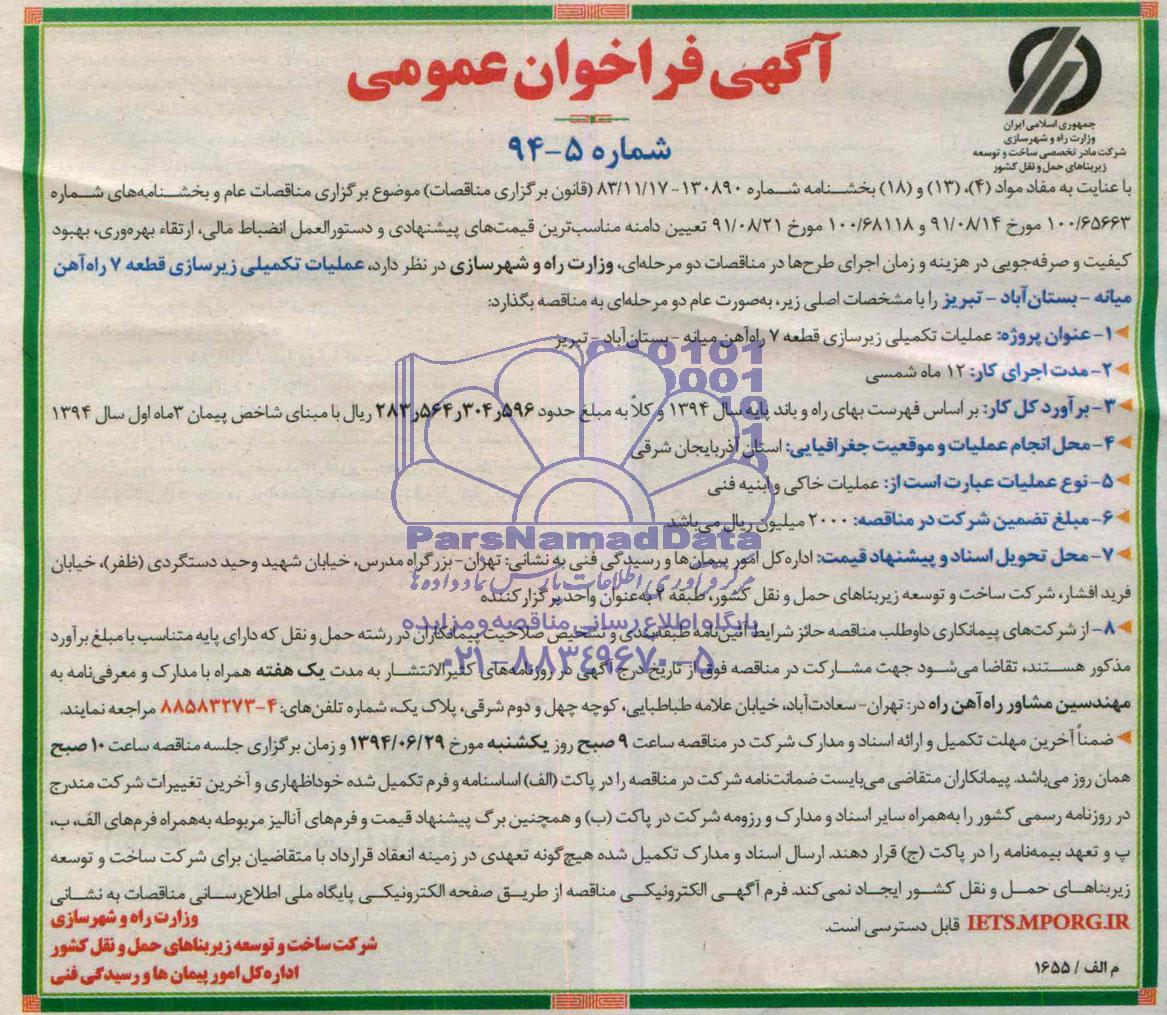 جمهوری اسلامی ایران
وزارت راه و شهرسازی
شرکت مادر تخصصی ساخت و توسعه
زیربناهای حمل و نقل کشور
آگهی فراخوان عمومی
شماره ۵-۹۴
با عنایت به مفاد مواد (۴)، (۱۳) و (۱۸) بخشنامه شماره ۱۳۰۸۹۰-۸۳/۱۱/۱۷ (قانون برگزاری مناقصات) موضوع برگزاری مناقصات عام و بخشنامه‌های شماره
۱۰۰/۶۵۶۶۳ مورخ ۹۱/۰۸/۱۴ و ۱۰۰/۶۸۱۱۸ مورخ ۹۱/۰۸/۲۱ تعیین دامنه مناسب‌ترین قیمت‌های پیشنهادی و دستورالعمل انضباط مالی، ارتقاء بهره‌وری، بهبود
کیفیت و صرفه‌جویی در هزینه و زمان اجرای طرح‌ها در مناقصات دو مرحله‌ای، وزارت راه و شهرسازی در نظر دارد، عملیات تکمیلی زیرسازی قطعه ۷ راه‌آهن
میانه - بستان‌آباد - تبریز را با مشخصات اصلی زیر، به‌صورت عام دو مرحله‌ای به مناقصه بگذارد:
۱- عنوان پروژه: عملیات تکمیلی زیرسازی قطعه ۷ راه‌آهن میانه - بستان‌آباد - تبریز
۲- مدت اجرای کار: ۱۲ ماه شمسی
۳- برآورد کل کار: بر اساس فهرست بهای راه و باند پایه سال ۱۳۹۴ و کلاً به مبلغ حدود ۲۸۳ر۵۶۴ر۳۰۴ر۵۹۶ ریال با مبنای شاخص پیمان ۳ماه اول سال ۱۳۹۴
۴- محل انجام عملیات و موقعیت جغرافیایی: استان آذربایجان شرقی
۵- نوع عملیات عبارت است از: عملیات خاکی و ابنیه فنی
۶- مبلغ تضمین شرکت در مناقصه: ۲۰۰۰ میلیون ریال می‌باشد.
۷- محل تحویل اسناد و پیشنهاد قیمت: اداره کل امور پیمان‌ها و رسیدگی فنی به نشانی: تهران- بزرگراه مدرس، خیابان شهید وحید دستگردی (ظفر)، خیابان
فرید افشار، شرکت ساخت و توسعه زیربناهای حمل و نقل کشور، طبقه ۲ به‌عنوان واحد برگزارکننده
۸- از شرکت‌های پیمانکاری داوطلب مناقصه حائز شرایط آئین‌نامه طبقه‌بندی و تشخیص صلاحیت پیمانکاران در رشته حمل و نقل که دارای پایه متناسب با مبلغ برآورد
مذکور هستند، تقاضا می‌شود جهت مشارکت در مناقصه فوق از تاریخ درج آگهی در روزنامه‌های کثیرالانتشار به مدت یک هفته همراه با مدارک و معرفی‌نامه به
مهندسین مشاور راه‌آهن راه در: تهران- سعادت‌آباد، خیابان علامه طباطبایی، کوچه چهل و دوم شرقی، پلاک یک، شماره تلفن‌های: ۴-۸۸۵۸۳۲۷۳ مراجعه نمایند.
ضمناً آخرین مهلت تکمیل و ارائه اسناد و مدارک شرکت در مناقصه ساعت ۹ صبح روز یکشنبه مورخ ۱۳۹۴/۰۶/۲۹ و زمان برگزاری جلسه مناقصه ساعت ۱۰ صبح
همان روز می‌باشد. پیمانکاران متقاضی می‌بایست ضمانت‌نامه شرکت در مناقصه را در پاکت (الف) اساسنامه و فرم تکمیل شده خوداظهاری و آخرین تغییرات شرکت مندرج
در روزنامه رسمی کشور را به‌همراه سایر اسناد و مدارک و رزومه شرکت در پاکت (ب) و همچنین برگ پیشنهاد قیمت و فرم‌های آنالیز مربوطه به‌همراه فرم‌های الف، ب،
پ و تعهد بیمه‌نامه را در پاکت (ج) قرار دهند. ارسال اسناد و مدارک تکمیل شده هیچ‌گونه تعهدی در زمینه انعقاد قرارداد با متقاضیان برای شرکت ساخت و توسعه
زیربناهای حمل و نقل کشور ایجاد نمی‌کند. فرم آگهی الکترونیکی مناقصه از طریق صفحه الکترونیکی پایگاه ملی اطلاع‌رسانی مناقصات به نشانی
IETS.MPORG.IR قابل دسترسی است.
وزارت راه و شهرسازی
شرکت ساخت و توسعه زیربناهای حمل و نقل کشور
اداره کل امور پیمان ها و رسیدگی فنی
م الف / ۱۶۵۵
ParsNamadData
مرکز فرآوری اطلاعات پارس نماد داده‌ها
پایگاه اطلاع رسانی مناقصه و مزایده
۰۲۱-۸۸۳۴۹۶۷۰-۵